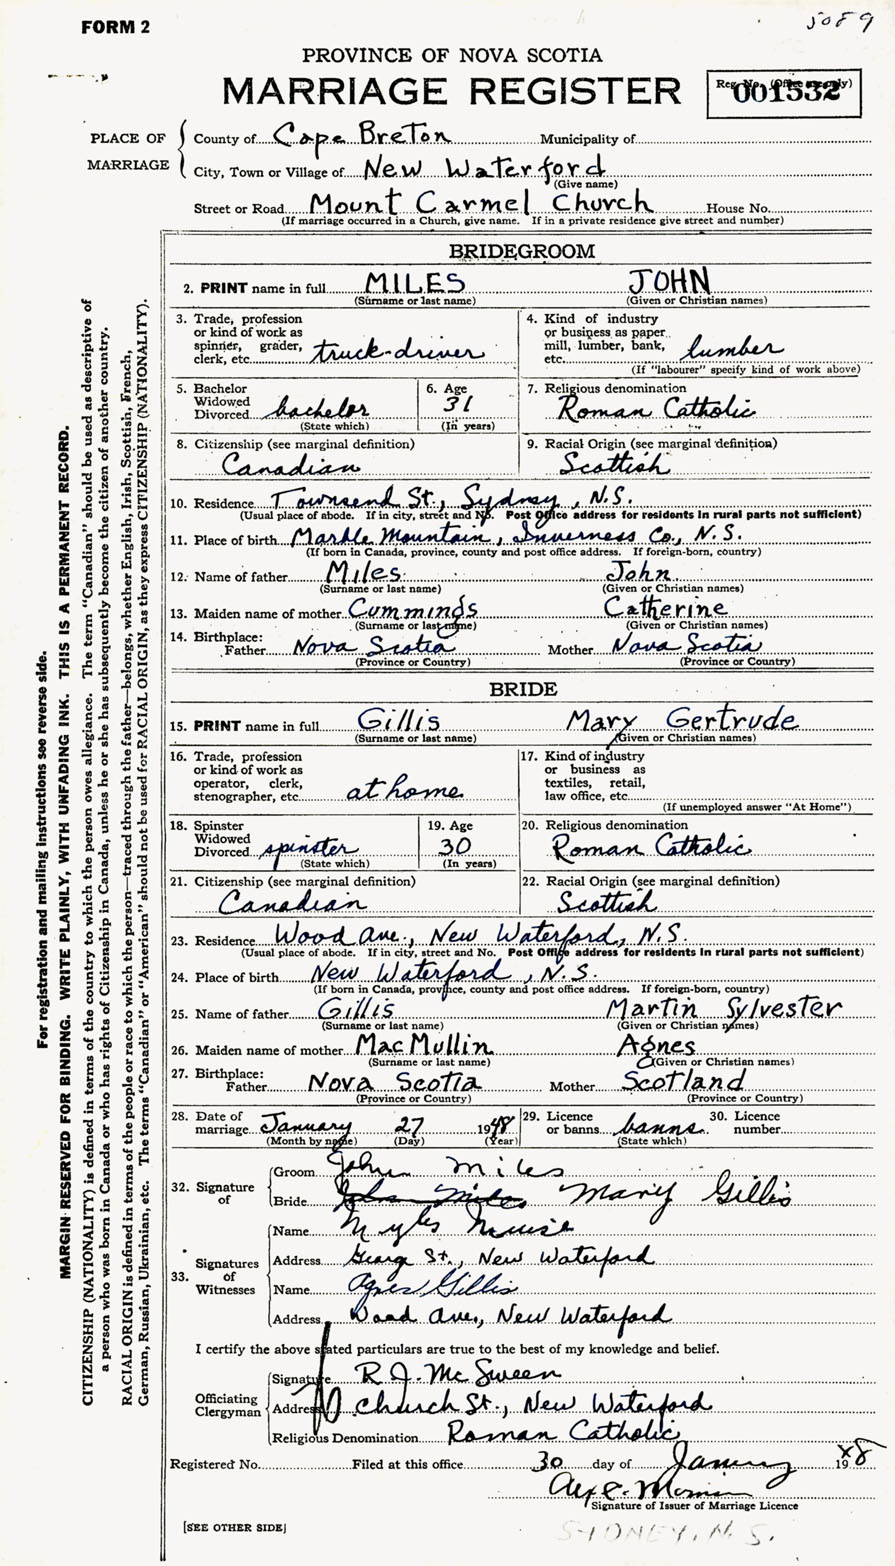 FORM 2
5089
PROVINCE OF NOVA SCOTIA
MARRIAGE REGISTER
Reg. No. (Office use only)
001532
PLACE OF MARRIAGE
County of Cape Breton Municipality of
City, Town or Village of New Waterford
(Give name)
Street or Road Mount Carmel Church House No.
(If marriage occurred in a Church, give name. If in a private residence give street and number)
BRIDEGROOM
2. PRINT name in full MILES JOHN
(Surname or last name) (Given or Christian names)
3. Trade, profession or kind of work as spinner, grader, clerk, etc. truck-driver
4. Kind of industry or business as paper mill, lumber, bank, etc. lumber
(If "labourer" specify kind of work above)
5. Bachelor Widowed Divorced bachelor
(State which)
6. Age 31
(In years)
7. Religious denomination Roman Catholic
8. Citizenship (see marginal definition) Canadian
9. Racial Origin (see marginal definition) Scottish
10. Residence Townsend St., Sydney, N.S.
(Usual place of abode. If in city, street and No. Post Office address for residents in rural parts not sufficient)
11. Place of birth Marble Mountain, Inverness Co., N.S.
(If born in Canada, province, county and post office address. If foreign-born, country)
12. Name of father Miles John
(Surname or last name) (Given or Christian names)
13. Maiden name of mother Cummings Catherine
(Surname or last name) (Given or Christian names)
14. Birthplace:
Father Nova Scotia Mother Nova Scotia
(Province or Country) (Province or Country)
BRIDE
15. PRINT name in full Gillis Mary Gertrude
(Surname or last name) (Given or Christian names)
16. Trade, profession or kind of work as operator, clerk, stenographer, etc. at home
17. Kind of industry or business as textiles, retail, law office, etc.
(If unemployed answer "At Home")
18. Spinster Widowed Divorced spinster
(State which)
19. Age 30
(In years)
20. Religious denomination Roman Catholic
21. Citizenship (see marginal definition) Canadian
22. Racial Origin (see marginal definition) Scottish
23. Residence Wood Ave., New Waterford, N.S.
(Usual place of abode. If in city, street and No. Post Office address for residents in rural parts not sufficient)
24. Place of birth New Waterford, N.S.
(If born in Canada, province, county and post office address. If foreign-born, country)
25. Name of father Gillis Martin Sylvester
(Surname or last name) (Given or Christian names)
26. Maiden name of mother MacMullin Agnes
(Surname or last name) (Given or Christian names)
27. Birthplace:
Father Nova Scotia Mother Scotland
(Province or Country) (Province or Country)
28. Date of marriage January 27 1948
(Month by name) (Day) (Year)
29. Licence or banns banns
(State which)
30. Licence number
32. Signature of
Groom John Miles
Bride John Miles Mary Gillis
33. Signatures of Witnesses
Name Myles Muise
Address George St., New Waterford
Name Agnes Gillis
Address Wood Ave., New Waterford
I certify the above stated particulars are true to the best of my knowledge and belief.
Officiating Clergyman
Signature R J. McSween
Address Church St., New Waterford
Religious Denomination Roman Catholic
Registered No. Filed at this office 30 day of January 1948
Signature of Issuer of Marriage Licence
[SEE OTHER SIDE]
SYDNEY, N.S.
For registration and mailing instructions see reverse side.
MARGIN RESERVED FOR BINDING. WRITE PLAINLY, WITH UNFADING INK. THIS IS A PERMANENT RECORD.
CITIZENSHIP (NATIONALITY) is defined in terms of the country to which the person owes allegiance. The term "Canadian" should be used as descriptive of
a person who was born in Canada or who has rights of Citizenship in Canada, unless he or she has subsequently become the citizen of another country.
RACIAL ORIGIN is defined in terms of the people or race to which the person—traced through the father—belongs, whether English, Irish, Scottish, French,
German, Russian, Ukrainian, etc. The terms "Canadian" or "American" should not be used for RACIAL ORIGIN, as they express CITIZENSHIP (NATIONALITY).